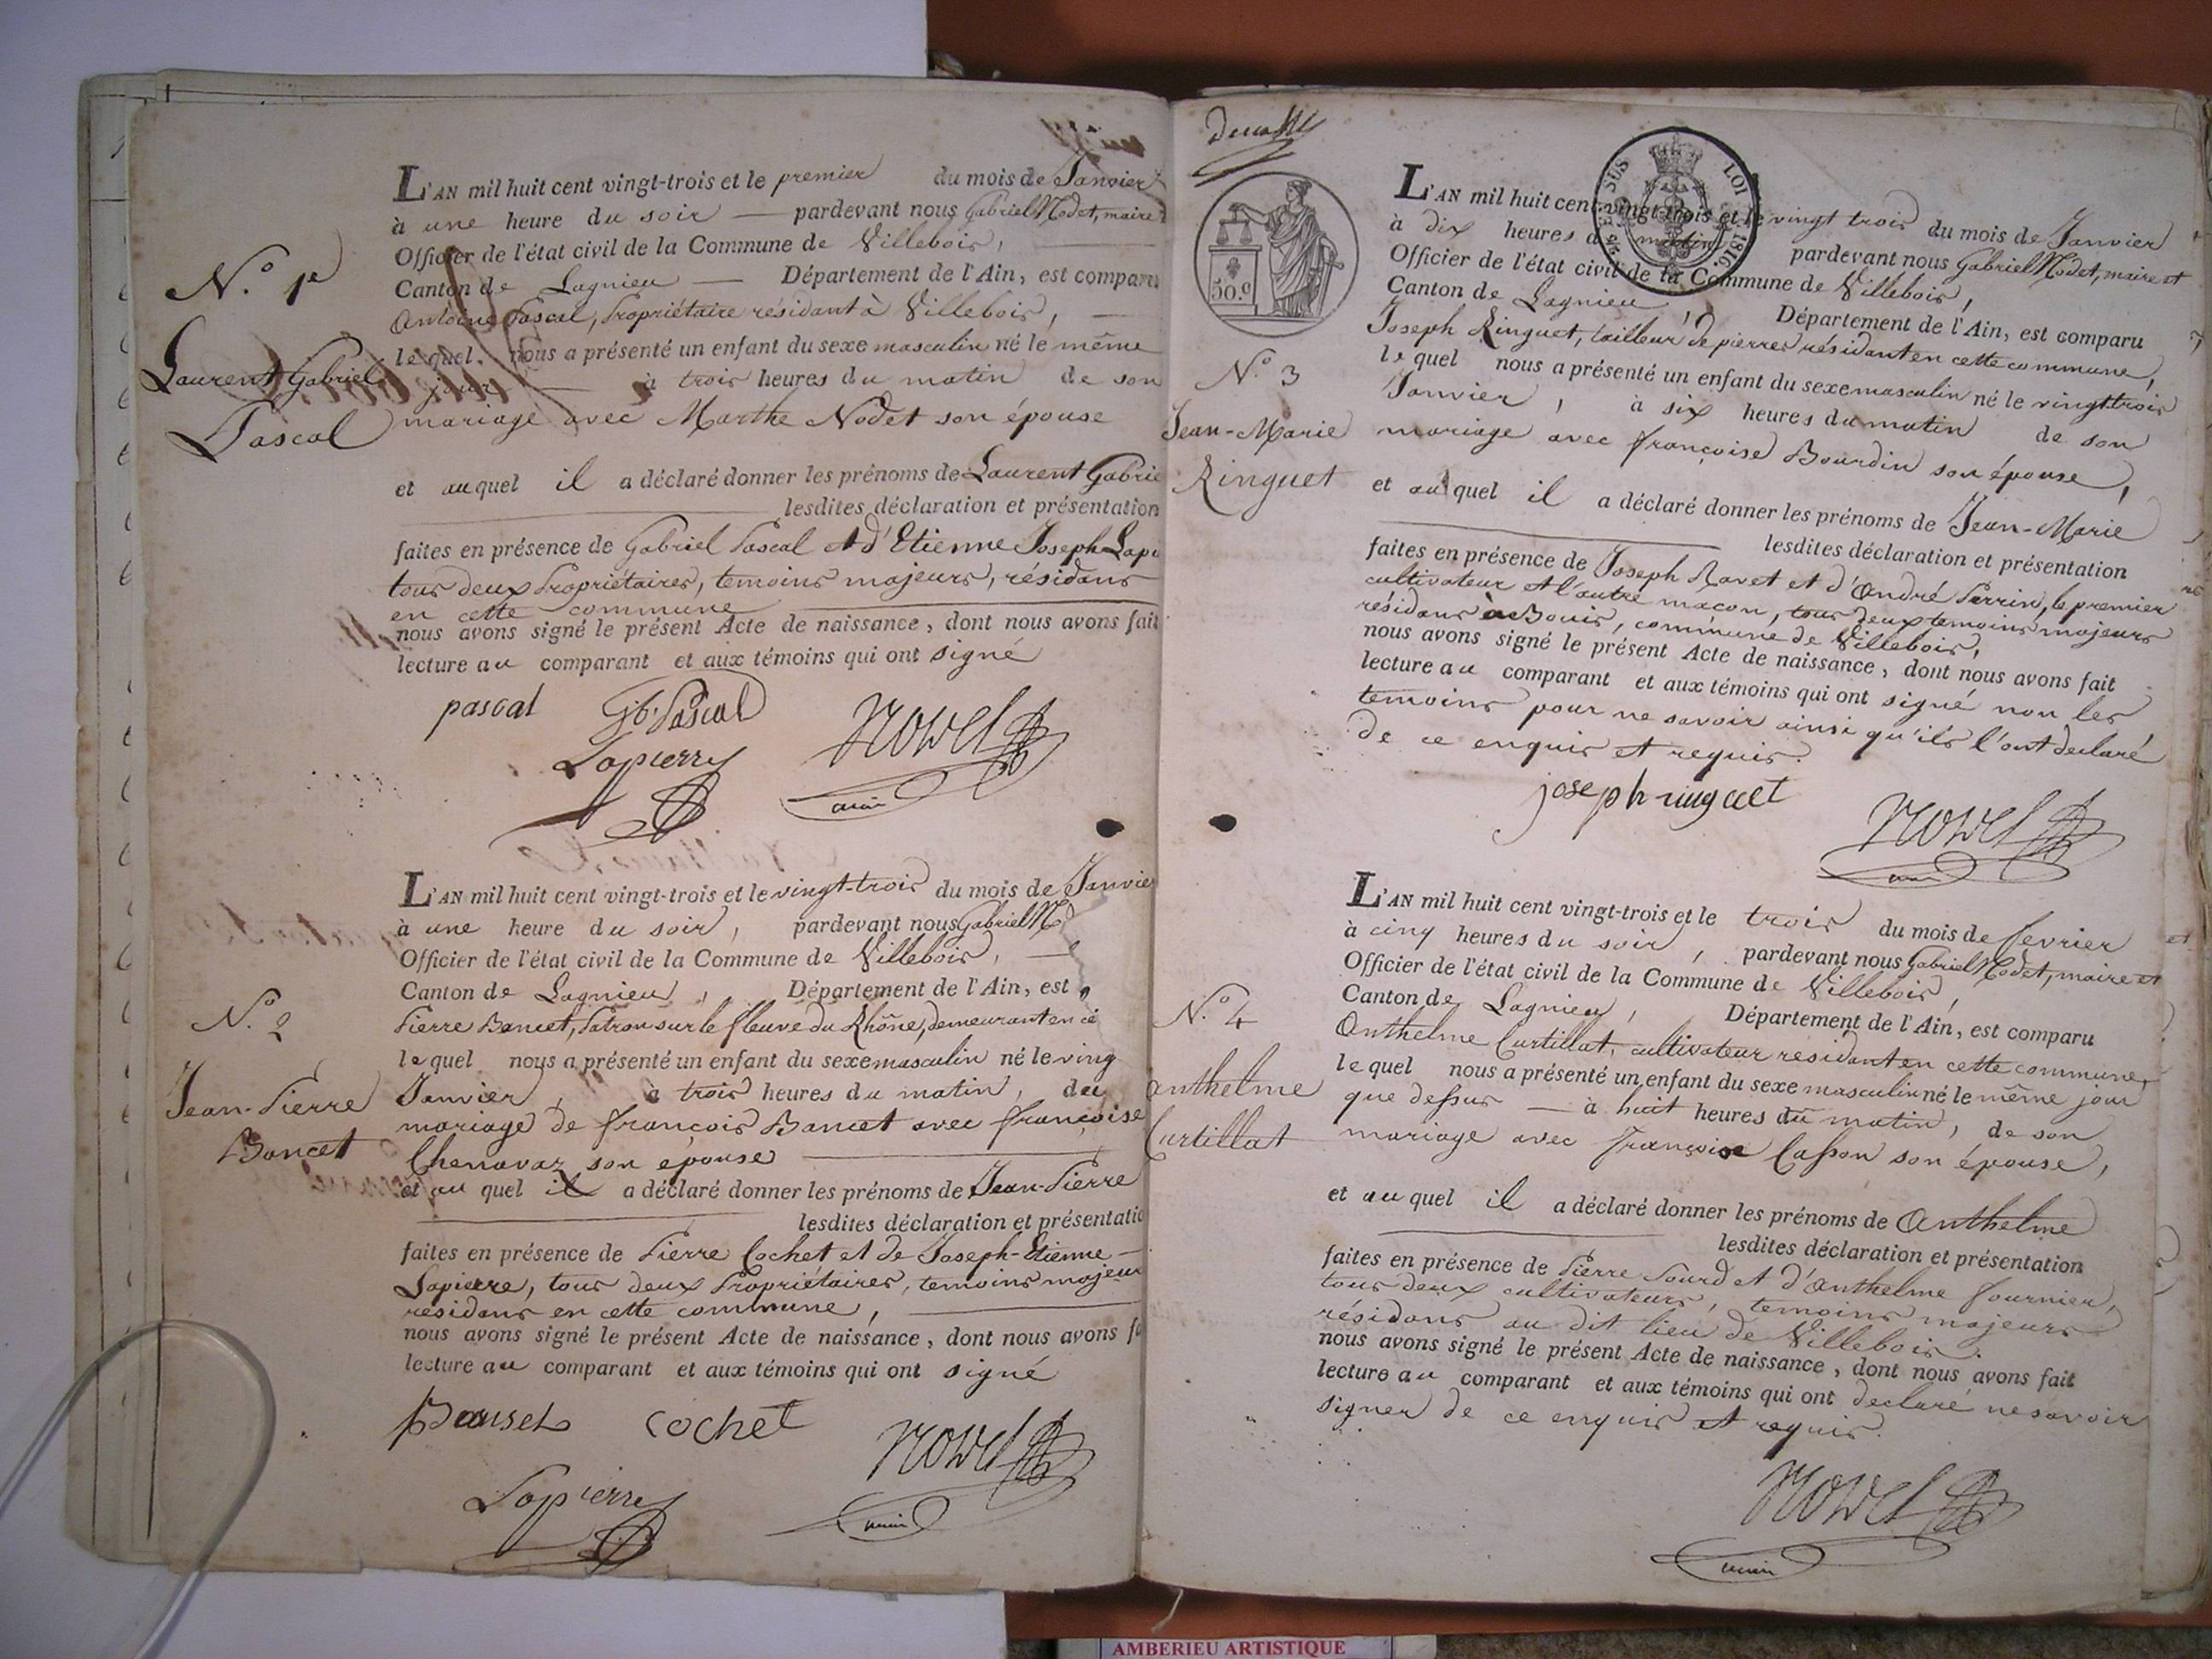 N.º 1er
Laurent Gabriel
Pascal
L'AN mil huit cent vingt-trois et le premier du mois de Janvier
à une heure du soir — pardevant nous Gabriel Nodet, maire
Officier de l'état civil de la Commune de Villebois,
Canton de Lagnieu — Département de l'Ain, est comparu
Antoine Pascal, Propriétaire résidant à Villebois, —
lequel nous a présenté un enfant du sexe masculin né le même
jour — à trois heures du matin de son
mariage avec Marthe Nodet son épouse
et auquel il a déclaré donner les prénoms de Laurent Gabrie
lesdites déclaration et présentation
faites en présence de Gabriel Pascal et d'Etienne Joseph Lapi
tous deux Propriétaires, temoins majeurs, résidans
en cette commune
nous avons signé le présent Acte de naissance, dont nous avons fait
lecture au comparant et aux témoins qui ont signé
pascal Gb. Pascal Nodet
Lapierre
maire
N.º 2
Jean-Pierre
Bancet
L'AN mil huit cent vingt-trois et le vingt-trois du mois de Janvier
à une heure du soir, pardevant nous Gabriel Nod
Officier de l'état civil de la Commune de Villebois, —
Canton de Lagnieu, Département de l'Ain, est
Pierre Bancet, Patron sur le fleuve du Rhône, demeurant en ce
lequel nous a présenté un enfant du sexe masculin né le ving
Janvier, à trois heures du matin, du
mariage de françois Bancet avec françoise
Chenavaz son epouse
et au quel il a déclaré donner les prénoms de Jean-Pierre
lesdites déclaration et présentatio
faites en présence de Pierre Cochet et de Joseph-Etienne —
Lapierre, tous deux Propriétaires, temoins majeur
residans en cette commune,
nous avons signé le présent Acte de naissance, dont nous avons fa
lecture au comparant et aux témoins qui ont signé
Banset Cochet Nodet
Lapierre
maire
50.c
SUS
LOI
1816.
N.º 3
Jean-Marie
Ringuet
L'AN mil huit cent vingt-trois et le vingt trois du mois de Janvier
à dix heures du matin pardevant nous Gabriel Nodet, maire et
Officier de l'état civil de la Commune de Villebois,
Canton de Lagnieu, Département de l'Ain, est comparu
Joseph Ringuet, tailleur de pierres résidant en cette commune,
lequel nous a présenté un enfant du sexe masculin né le vingt-trois
Janvier, à six heures du matin de son
mariage avec françoise Bourdin son épouse,
et auquel il a déclaré donner les prénoms de Jean-Marie
lesdites déclaration et présentation
faites en présence de Joseph Ravet et d'André Perrin, le premier
cultivateur et l'autre macon, tous deux temoins majeurs
résidans à Bouis, commune de Villebois,
nous avons signé le présent Acte de naissance, dont nous avons fait
lecture au comparant et aux témoins qui ont signé non les
temoins pour ne savoir ainsi qu'ils l'ont declaré
de ce enquis et requis.
joseph ringuet
Nodet
N.º 4
Anthelme
Curtillat
L'AN mil huit cent vingt-trois et le trois du mois de fevrier
à cinq heures du soir, pardevant nous Gabriel Nodet, maire et
Officier de l'état civil de la Commune de Villebois,
Canton de Lagnieu, Département de l'Ain, est comparu
Anthelme Curtillat, cultivateur residant en cette commune,
lequel nous a présenté un enfant du sexe masculin né le même jour
que dessus — à huit heures du matin, de son
mariage avec françoise Casson son épouse,
et au quel il a déclaré donner les prénoms de Anthelme
lesdites déclaration et présentation
faites en présence de Pierre Sourd et d'Anthelme fournier,
tous deux cultivateurs, temoins majeurs
résidans au dit lieu de Villebois.
nous avons signé le présent Acte de naissance, dont nous avons fait
lecture au comparant et aux témoins qui ont declaré ne savoir
signer de ce enquis et requis.
Nodet
maire
AMBERIEU ARTISTIQUE